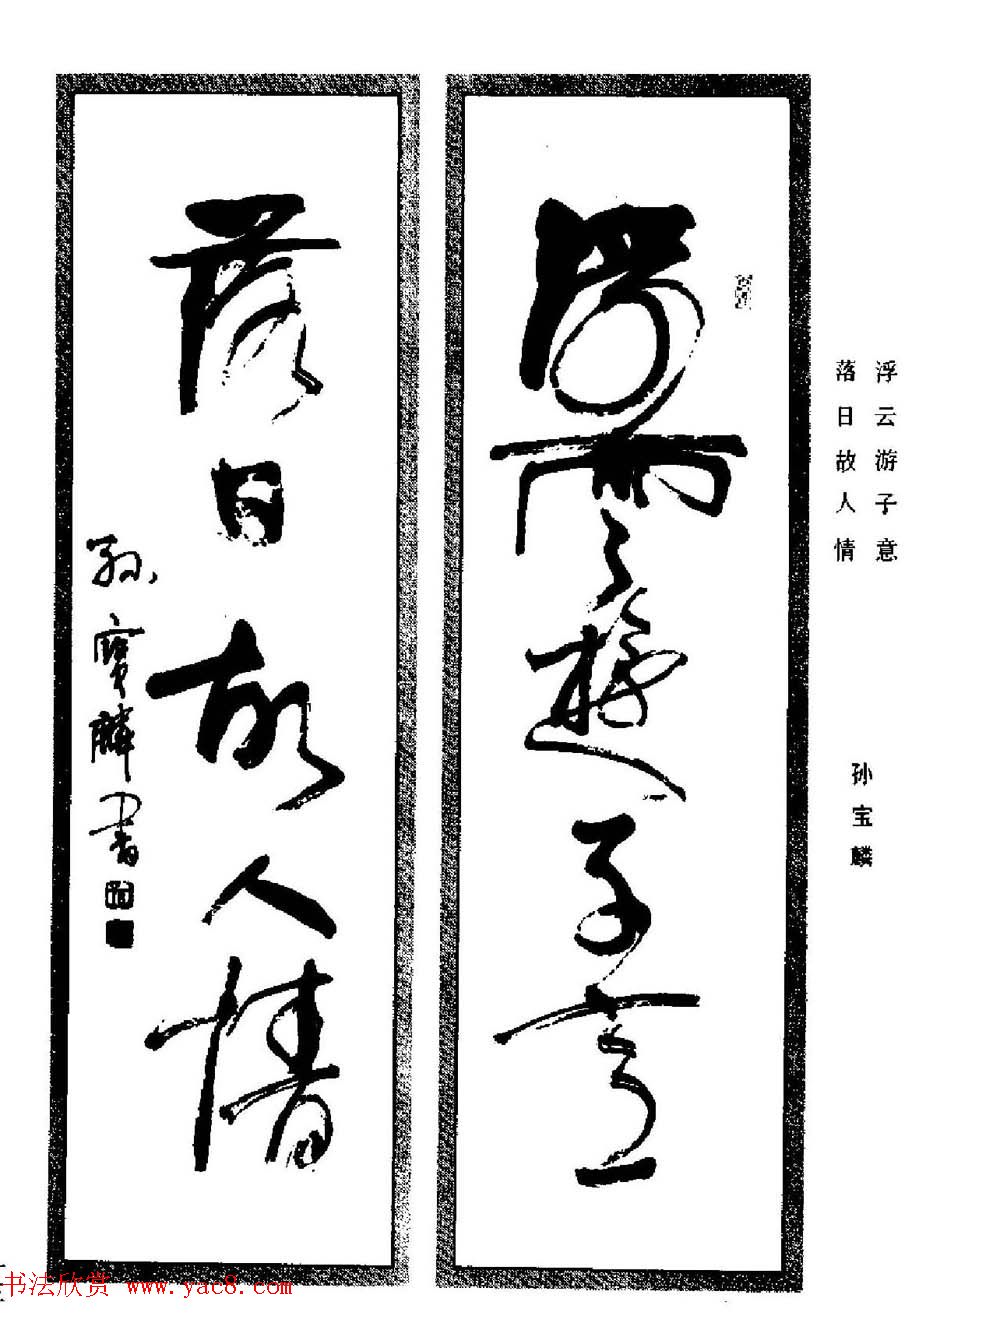 浮云游子意
落日故人情
孙宝麟
浮雲遊子意
落日故人情
孫寶麟書
书法欣赏 www.yac8.com